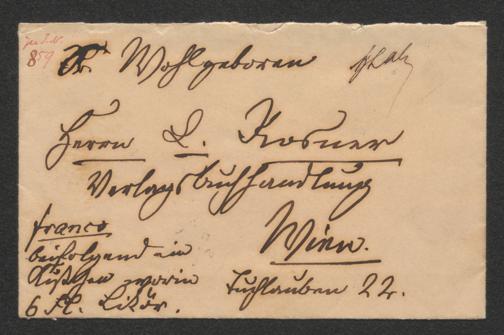 859
Sr. Wohlgeboren
Herrn L. Rosner
Verlagsbuchhandlung
Wien.
Tuchlauben 22.
franco
beifolgend ein
Kistchen worin
6 Fl. Likör.